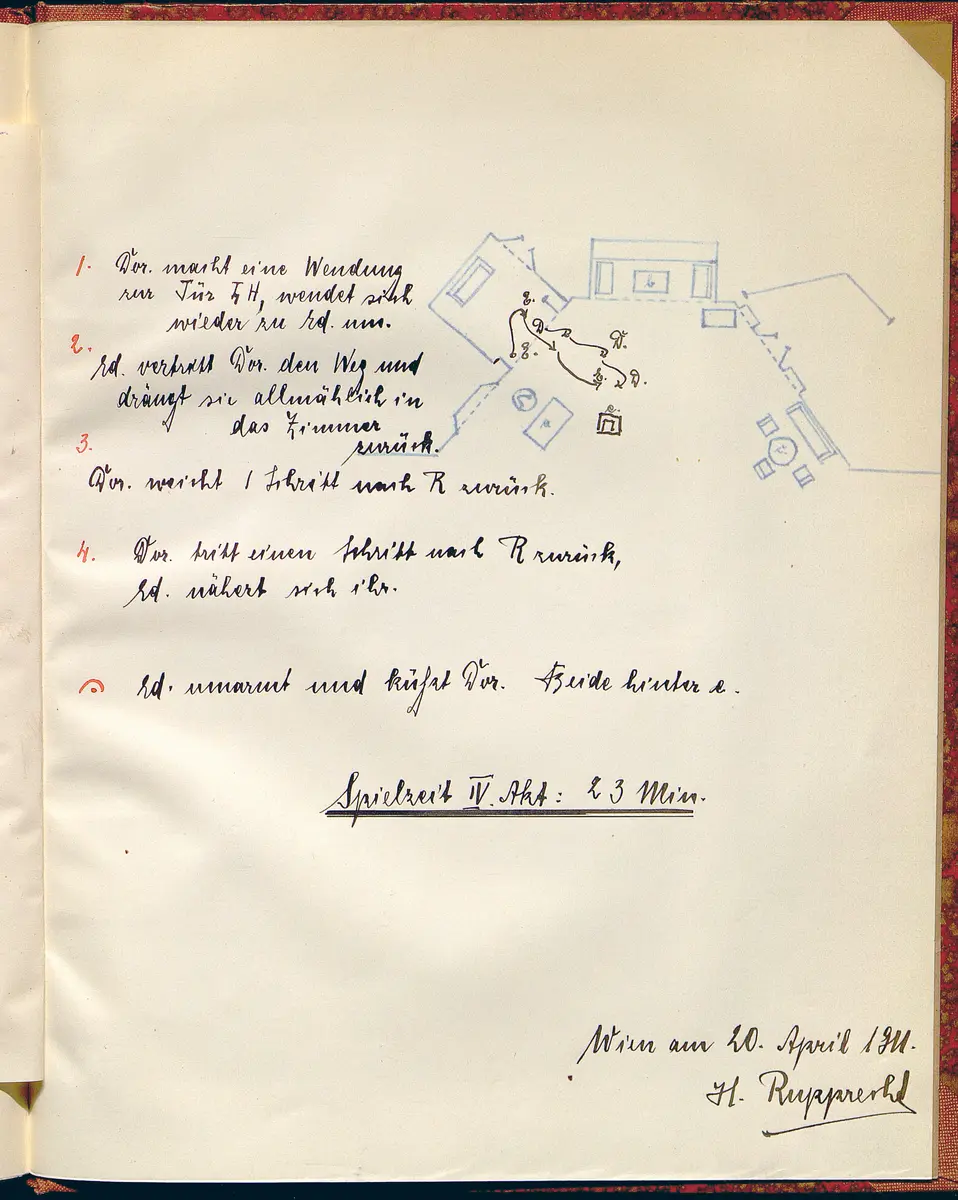 1. Dor. macht eine Wendung
zur Tür LH, wendet sich
wieder zu Ed. um.
2.
Ed. vertritt Dor. den Weg und
drängt sie allmählich in
das Zimmer
zurück.
3.
Dor. weicht 1 Schritt nach R zurück.
4. Dor. tritt einen Schritt nach R zurück,
Ed. nähert sich ihr.
Ed. umarmt und küßt Dor. Beide hinter e.
Spielzeit IV. Akt: 23 Min.
Wien am 20. April 1911.
H. Rupprecht
E.
D.
E.
D.
E.
D.
e.
b
a